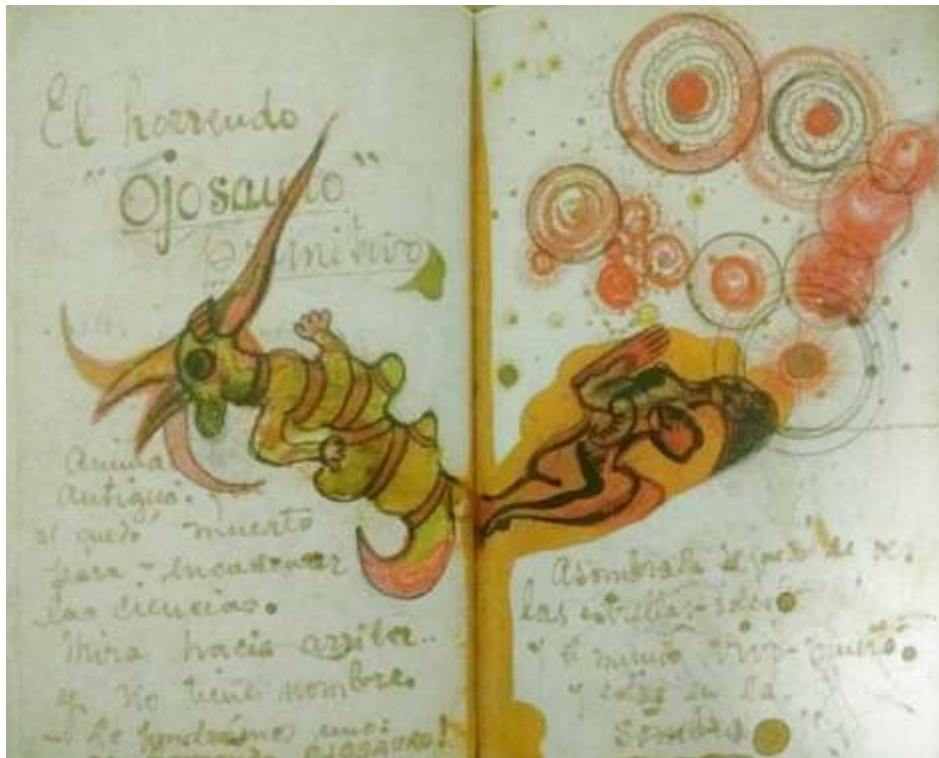 El horrendo
"Ojosauro"
primitivo
Animal
antiguo.
el quedó muerto
para - encadenar
las ciencias.
Mira hacia arriba..
y no tiene nombre.
- Le pondremos uno:
horrendo OJOSAURO!
Asombrada se quedó de
las estrellas-soles
y el mundo vivo-muerto
y estar en la
sombra